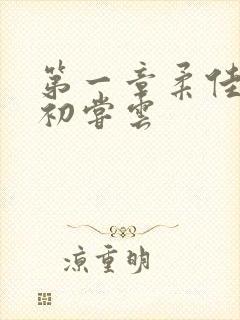 第一章柔佳
初尝云
凉重明